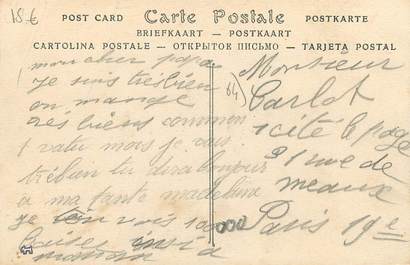 15€
POST CARD Carte Postale POSTKARTE
BRIEFKAART — POSTKAART
CARTOLINA POSTALE — ОТКРЫТОК ПИСЬМО — TARJETA POSTAL
mon cher papa
je suis trè bien
on mange
très biens commen
t vatu mois je vais
trèbien tu dira bonjour
à ma tante madeleine
je vois 10000
baiser insi a
maman
64
Monsieur
Carlot
1 cité le page
31 rue de
meaux
Paris 19e